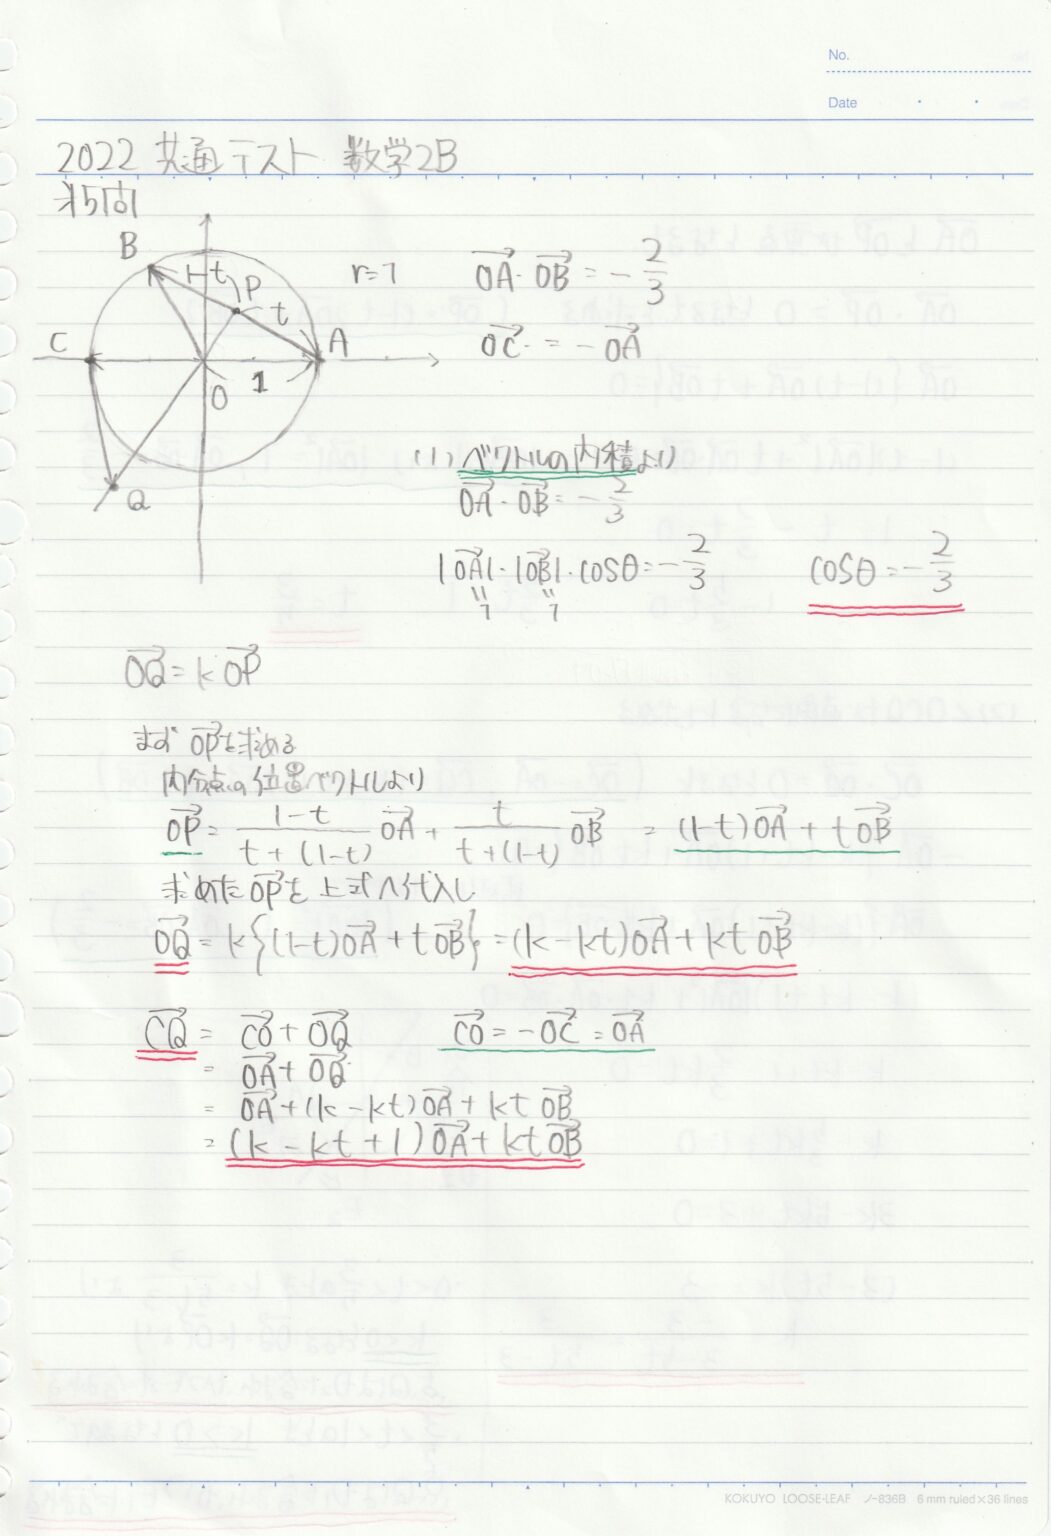 No.
Date
2022 共通テスト 数学2B
第5問
B
1-t
P
t
r=1
C
A
O
1
Q
$\overrightarrow{OA}\cdot\overrightarrow{OB}=-\frac{2}{3}$
$\overrightarrow{OC}=-\overrightarrow{OA}$
(1) ベクトルの内積より
$\overrightarrow{OA}\cdot\overrightarrow{OB}=-\frac{2}{3}$
$|\overrightarrow{OA}|\cdot|\overrightarrow{OB}|\cdot\cos\theta=-\frac{2}{3}$ $\cos\theta=-\frac{2}{3}$
1 1
$\overrightarrow{OQ}=k\overrightarrow{OP}$
まず $\overrightarrow{OP}$を求める
内分点の位置ベクトルより
$\overrightarrow{OP}=\frac{1-t}{t+(1-t)}\overrightarrow{OA}+\frac{t}{t+(1-t)}\overrightarrow{OB}=(1-t)\overrightarrow{OA}+t\overrightarrow{OB}$
求めた$\overrightarrow{OP}$を上式へ代入し
$\overrightarrow{OQ}=k\{(1-t)\overrightarrow{OA}+t\overrightarrow{OB}\}=(k-kt)\overrightarrow{OA}+kt\overrightarrow{OB}$
$\overrightarrow{CQ}=\overrightarrow{CO}+\overrightarrow{OQ}$ $\overrightarrow{CO}=-\overrightarrow{OC}=\overrightarrow{OA}$
$=\overrightarrow{OA}+\overrightarrow{OQ}$
$=\overrightarrow{OA}+(k-kt)\overrightarrow{OA}+kt\overrightarrow{OB}$
$=(k-kt+1)\overrightarrow{OA}+kt\overrightarrow{OB}$
KOKUYO LOOSE-LEAF ノ-836B 6 mm ruled×36 lines